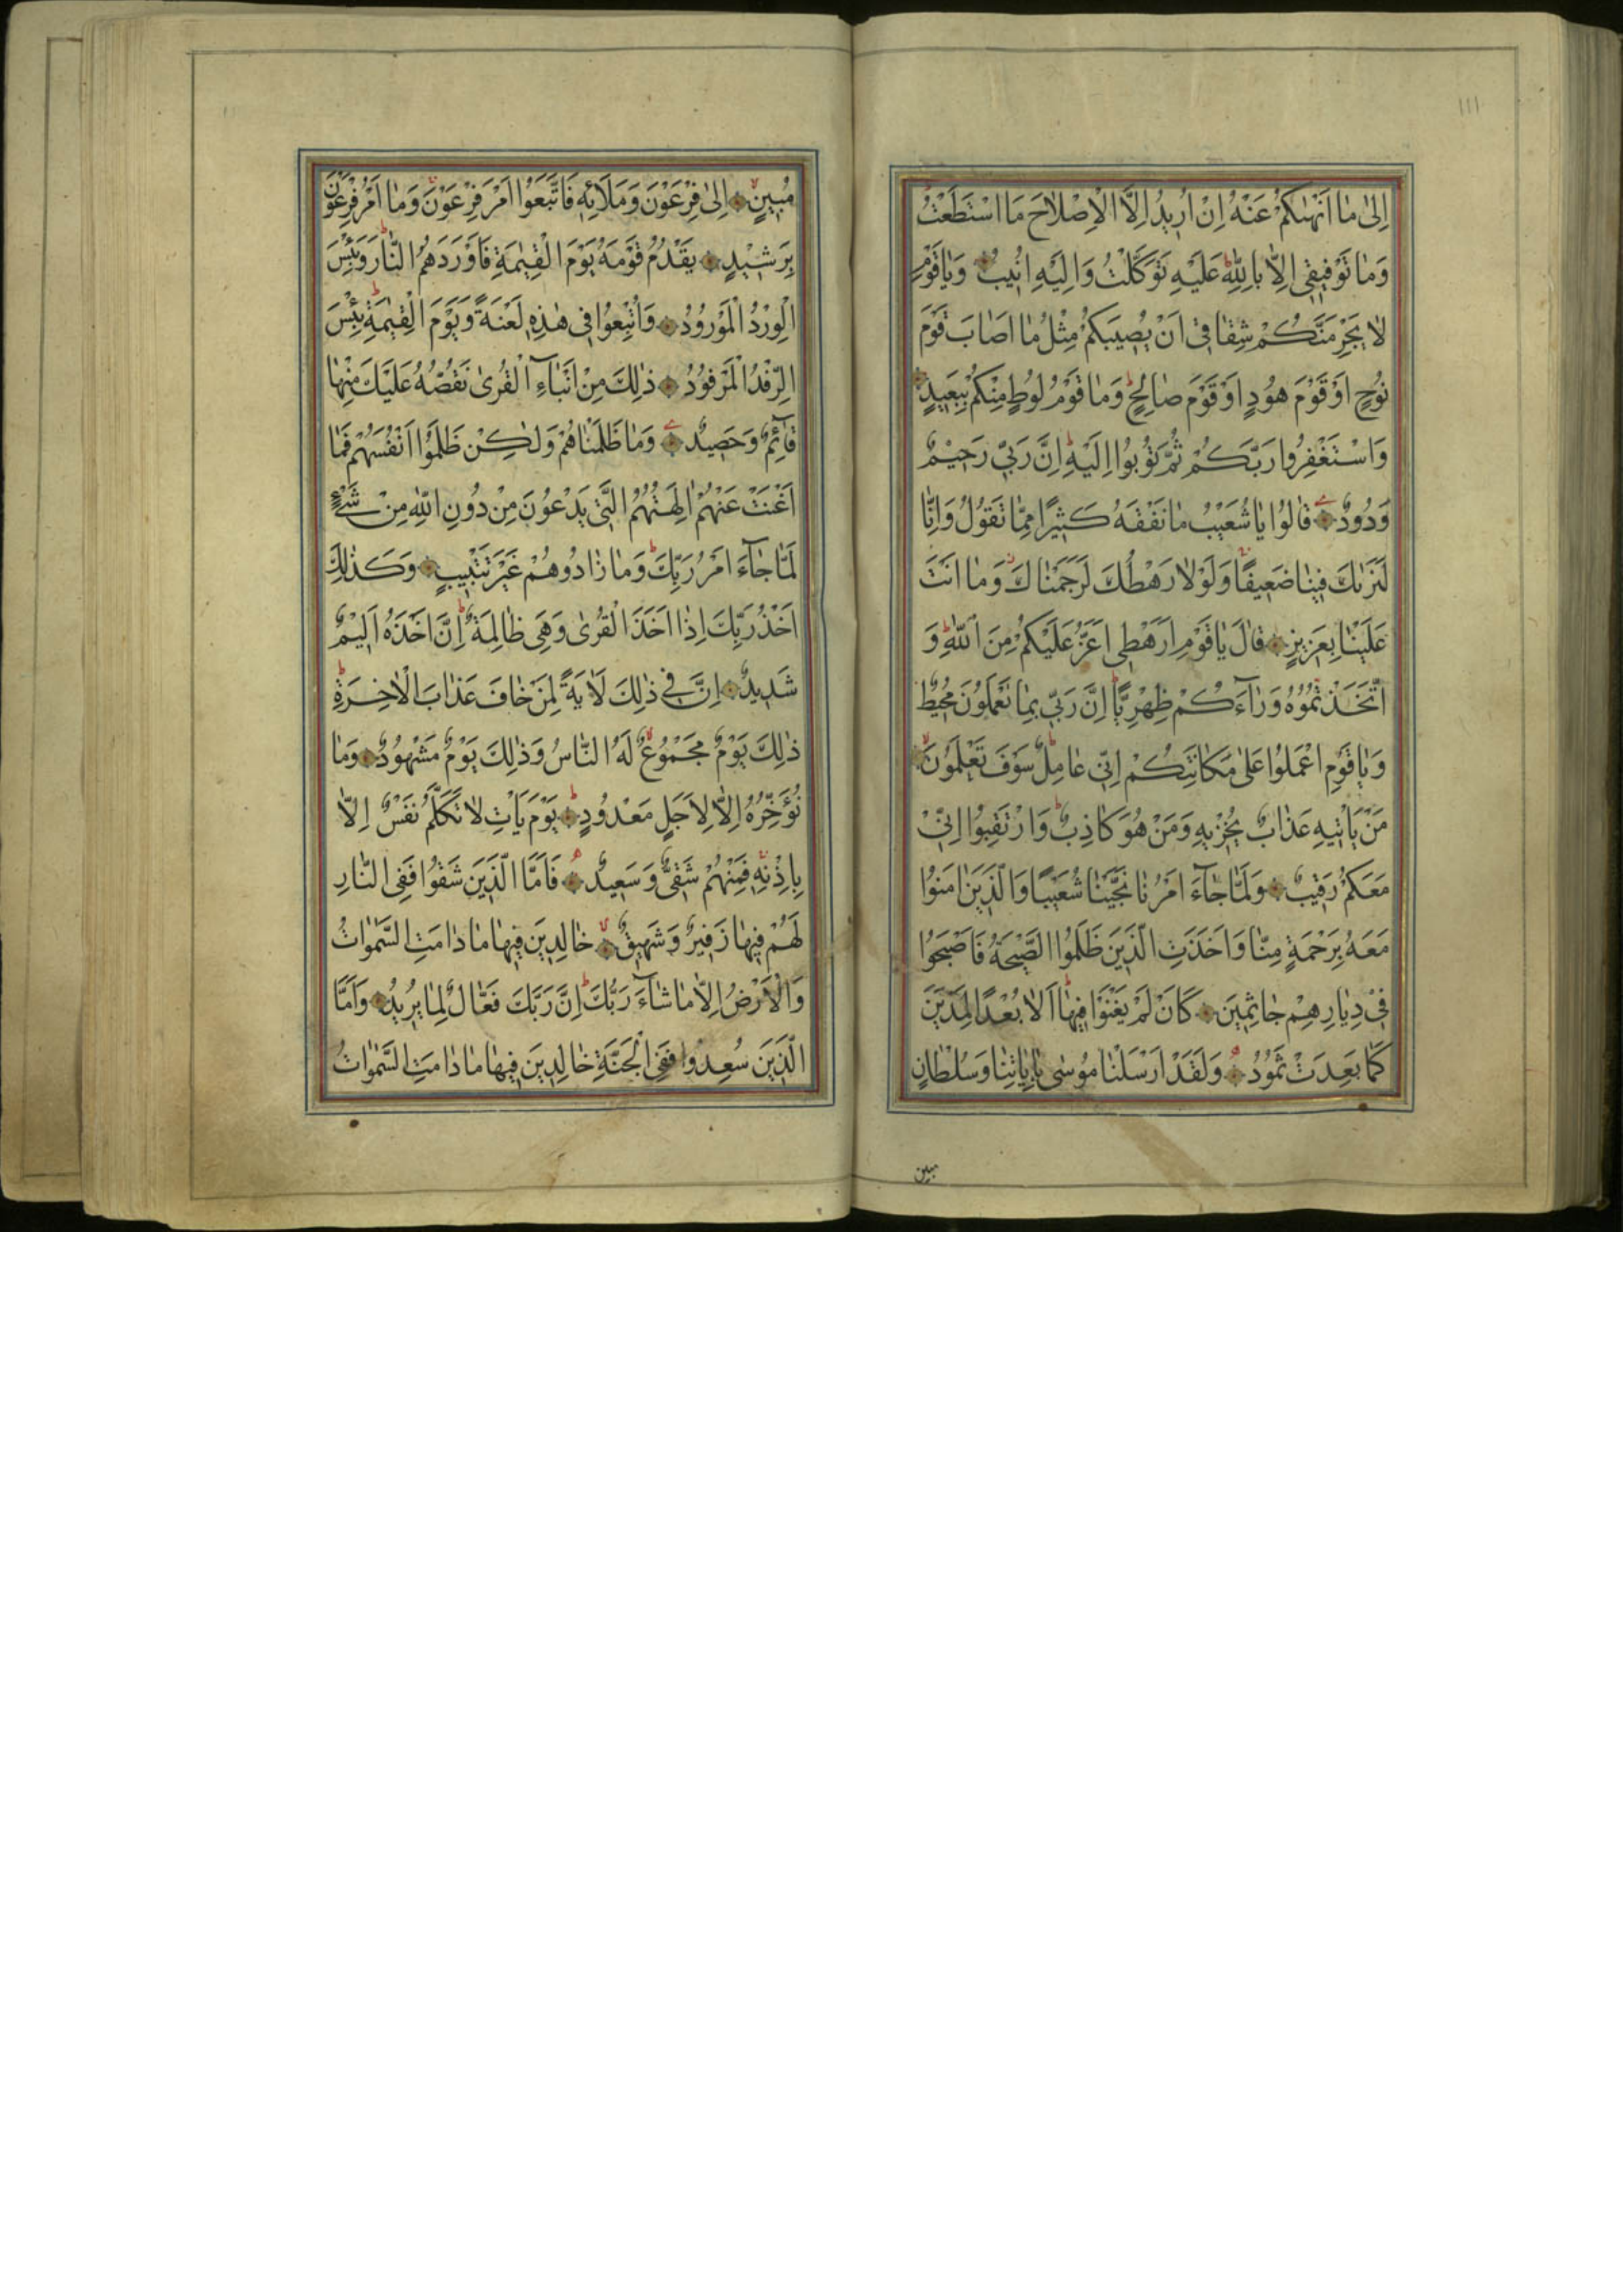 ١١١
اِلىٰ مٰا اَنْهٰیكُمْ عَنْهُ اِنْ اُرٖيدُ اِلَّا الْاِصْلٰاحَ مَا اسْتَطَعْتُ
وَمٰا تَوْفٖيقٖى اِلّٰا بِاللّٰهِ عَلَيْهِ تَوَكَّلْتُ وَاِلَيْهِ اُنٖيبُ وَيٰا قَوْمِ
لٰا يَجْرِمَنَّكُمْ شِقٰاقٖى اَنْ يُصٖيبَكُمْ مِثْلُ مٰا اَصٰابَ قَوْمَ
نُوحٍ اَوْ قَوْمَ هُودٍ اَوْ قَوْمَ صٰالِحٍ وَمٰا قَوْمُ لُوطٍ مِنْكُمْ بِبَعٖيدٍ
وَاسْتَغْفِرُوا رَبَّكُمْ ثُمَّ تُوبُوا اِلَيْهِ اِنَّ رَبّٖى رَحٖيمٌ
وَدُودٌ قٰالُوا يٰا شُعَيْبُ مٰا نَفْقَهُ كَثٖيرًا مِمّٰا تَقُولُ وَاِنّٰا
لَنَرٰیكَ فٖينٰا ضَعٖيفًا وَلَوْلٰا رَهْطُكَ لَرَجَمْنٰاكَ وَمٰا اَنْتَ
عَلَيْنٰا بِعَزٖيزٍ قٰالَ يٰا قَوْمِ اَرَهْطٖى اَعَزُّ عَلَيْكُمْ مِنَ اللّٰهِ وَ
اتَّخَذْتُمُوهُ وَرٰآءَكُمْ ظِهْرِيًّا اِنَّ رَبّٖى بِمٰا تَعْمَلُونَ مُحٖيطٌ
وَيٰا قَوْمِ اعْمَلُوا عَلىٰ مَكٰانَتِكُمْ اِنّٖى عٰامِلٌ سَوْفَ تَعْلَمُونَ
مَنْ يَاْتٖيهِ عَذٰابٌ يُخْزٖيهِ وَمَنْ هُوَ كٰاذِبٌ وَارْتَقِبُوا اِنّٖى
مَعَكُمْ رَقٖيبٌ وَلَمّٰا جٰآءَ اَمْرُنٰا نَجَّيْنٰا شُعَيْبًا وَالَّذٖينَ اٰمَنُوا
مَعَهُ بِرَحْمَةٍ مِنّٰا وَاَخَذَتِ الَّذٖينَ ظَلَمُوا الصَّيْحَةُ فَاَصْبَحُوا
فٖى دِيٰارِهِمْ جٰاثِمٖينَ كَاَنْ لَمْ يَغْنَوْا فٖيهٰا اَلٰا بُعْدًا لِمَدْيَنَ
كَمٰا بَعِدَتْ ثَمُودُ وَلَقَدْ اَرْسَلْنٰا مُوسٰى بِاٰيٰاتِنٰا وَسُلْطٰانٍ
مبین
مُبٖينٍ اِلىٰ فِرْعَوْنَ وَمَلَائِهٖ فَاتَّبَعُوا اَمْرَ فِرْعَوْنَ وَمٰا اَمْرُ فِرْعَوْنَ
بِرَشٖيدٍ يَقْدُمُ قَوْمَهُ يَوْمَ الْقِيٰمَةِ فَاَوْرَدَهُمُ النّٰارَ وَبِئْسَ
الْوِرْدُ الْمَوْرُودُ وَاُتْبِعُوا فٖى هٰذِهٖ لَعْنَةً وَيَوْمَ الْقِيٰمَةِ بِئْسَ
الرِّفْدُ الْمَرْفُودُ ذٰلِكَ مِنْ اَنْبٰآءِ الْقُرىٰ نَقُصُّهُ عَلَيْكَ مِنْهٰا
قٰآئِمٌ وَحَصٖيدٌ وَمٰا ظَلَمْنٰاهُمْ وَلٰكِنْ ظَلَمُوا اَنْفُسَهُمْ فَمٰا
اَغْنَتْ عَنْهُمْ اٰلِهَتُهُمُ الَّتٖى يَدْعُونَ مِنْ دُونِ اللّٰهِ مِنْ شَىْءٍ
لَمّٰا جٰآءَ اَمْرُ رَبِّكَ وَمٰا زٰادُوهُمْ غَيْرَ تَتْبٖيبٍ وَكَذٰلِكَ
اَخْذُ رَبِّكَ اِذٰا اَخَذَ الْقُرىٰ وَهِىَ ظٰالِمَةٌ اِنَّ اَخْذَهُ اَلٖيمٌ
شَدٖيدٌ اِنَّ فٖى ذٰلِكَ لَاٰيَةً لِمَنْ خٰافَ عَذٰابَ الْاٰخِرَةِ
ذٰلِكَ يَوْمٌ مَجْمُوعٌ لَهُ النّٰاسُ وَذٰلِكَ يَوْمٌ مَشْهُودٌ وَمٰا
نُؤَخِّرُهُ اِلّٰا لِاَجَلٍ مَعْدُودٍ يَوْمَ يَاْتِ لٰا تَكَلَّمُ نَفْسٌ اِلّٰا
بِاِذْنِهٖ فَمِنْهُمْ شَقِىٌّ وَسَعٖيدٌ فَاَمَّا الَّذٖينَ شَقُوا فَفِى النّٰارِ
لَهُمْ فٖيهٰا زَفٖيرٌ وَشَهٖيقٌ خٰالِدٖينَ فٖيهٰا مٰا دٰامَتِ السَّمٰوٰاتُ
وَالْاَرْضُ اِلّٰا مٰا شٰآءَ رَبُّكَ اِنَّ رَبَّكَ فَعّٰالٌ لِمٰا يُرٖيدُ وَاَمَّا
الَّذٖينَ سُعِدُوا فَفِى الْجَنَّةِ خٰالِدٖينَ فٖيهٰا مٰا دٰامَتِ السَّمٰوٰاتُ